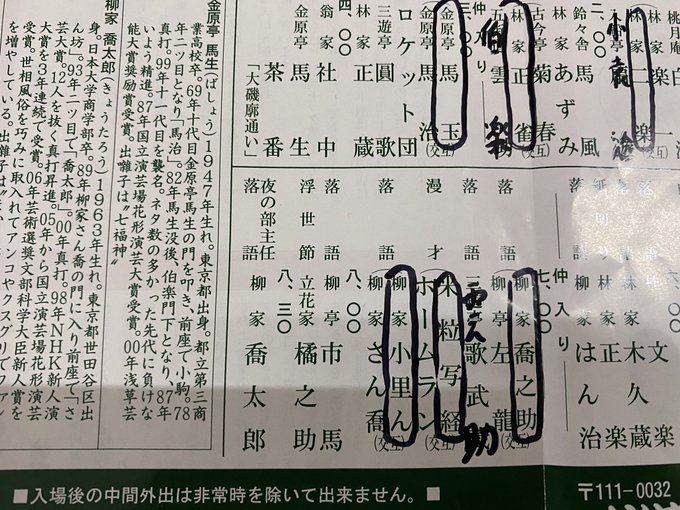 鈴々舎馬風
林家あずみ
古今亭菊春
林家正雀(交互)
伯楽
仲入り
三.〇〇
金原亭馬玉
金原亭馬治(交互)
ロケット団
三遊亭圓歌
林家正蔵
四.〇〇
翁家社中
金原亭馬生
茶番「大磯廓通い」
紙切り 林家正楽
落語 柳家はん治
仲入り
七.〇〇
落語 柳家喬之助
柳亭左龍(交互)
落語 歌武
雲助
漫才 米粒写経
ホームラン(交互)
落語 柳家小里ん
柳家さん喬(交互)
落語 柳亭市馬
浮世節 立花家橘之助
八.三〇
夜の部主任
落語 柳家喬太郎
金原亭 馬生(ばしょう)1947年生れ。東京都出身。都立第三商
業高校卒。69年十代目金原亭馬生の門を叩き、前座で小駒。78
年二ツ目となり「馬治」。82年馬生没後、伯楽門下となり、87年
真打。99年十一代目を襲名。ネタ数の多かった先代に負けな
いよう精進。87年国立演芸場花形演芸大賞受賞。00年浅草芸
能大賞奨励賞受賞。出囃子は“七福神”
柳家 喬太郎(きょうたろう)1963年生れ。東京都世田谷区出
身。日本大学商学部卒。89年柳家さん喬の門に入り、前座で「さ
ん坊」。93年二ツ目で「喬太郎」。00年真打。98年NHK新人演
芸大賞。12人を抜く真打昇進。05年から国立演芸場花形演芸
大賞を3年連続で受賞。06年芸術選奨文部科学大臣新人賞を
受賞。世相風俗を巧みに取入れてアンコやクスグリでファン
を増やしている。出囃子は
■入場後の中間外出は非常時を除いて出来ません。■
〒111-0032